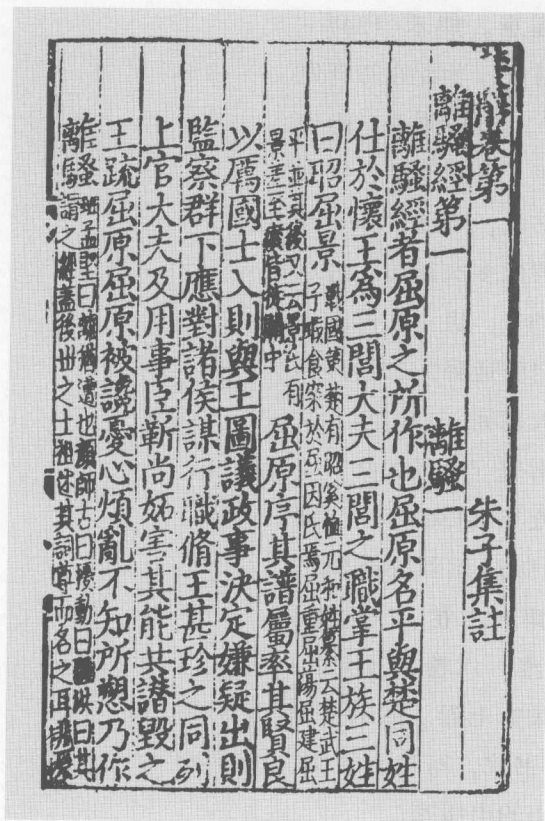 楚辭卷第一 朱子集註
離騷經第一 離騷一
離騷經者屈原之所作也屈原名平與楚同姓
仕於懷王爲三閭大夫三閭之職掌王族三姓
曰昭屈景
戰國策楚有昭奚恤元和姓纂云楚武王
子瑕食采於屈因氏焉屈重屈蕩屈建屈
平並其後又云景氏有
景差至漢皆徙關中
屈原序其譜屬率其賢良
以厲國士入則與王圖議政事決定嫌疑出則
監察群下應對諸侯謀行職脩王甚珍之同列
上官大夫及用事臣靳尚妬害其能共譖毀之
王疏屈原屈原被讒憂心煩亂不知所愬乃作
離騷
班孟堅曰離猶遭也顏師古曰擾動曰騷洪曰其
謂之經蓋後世之士祖述其詞尊而名之耳